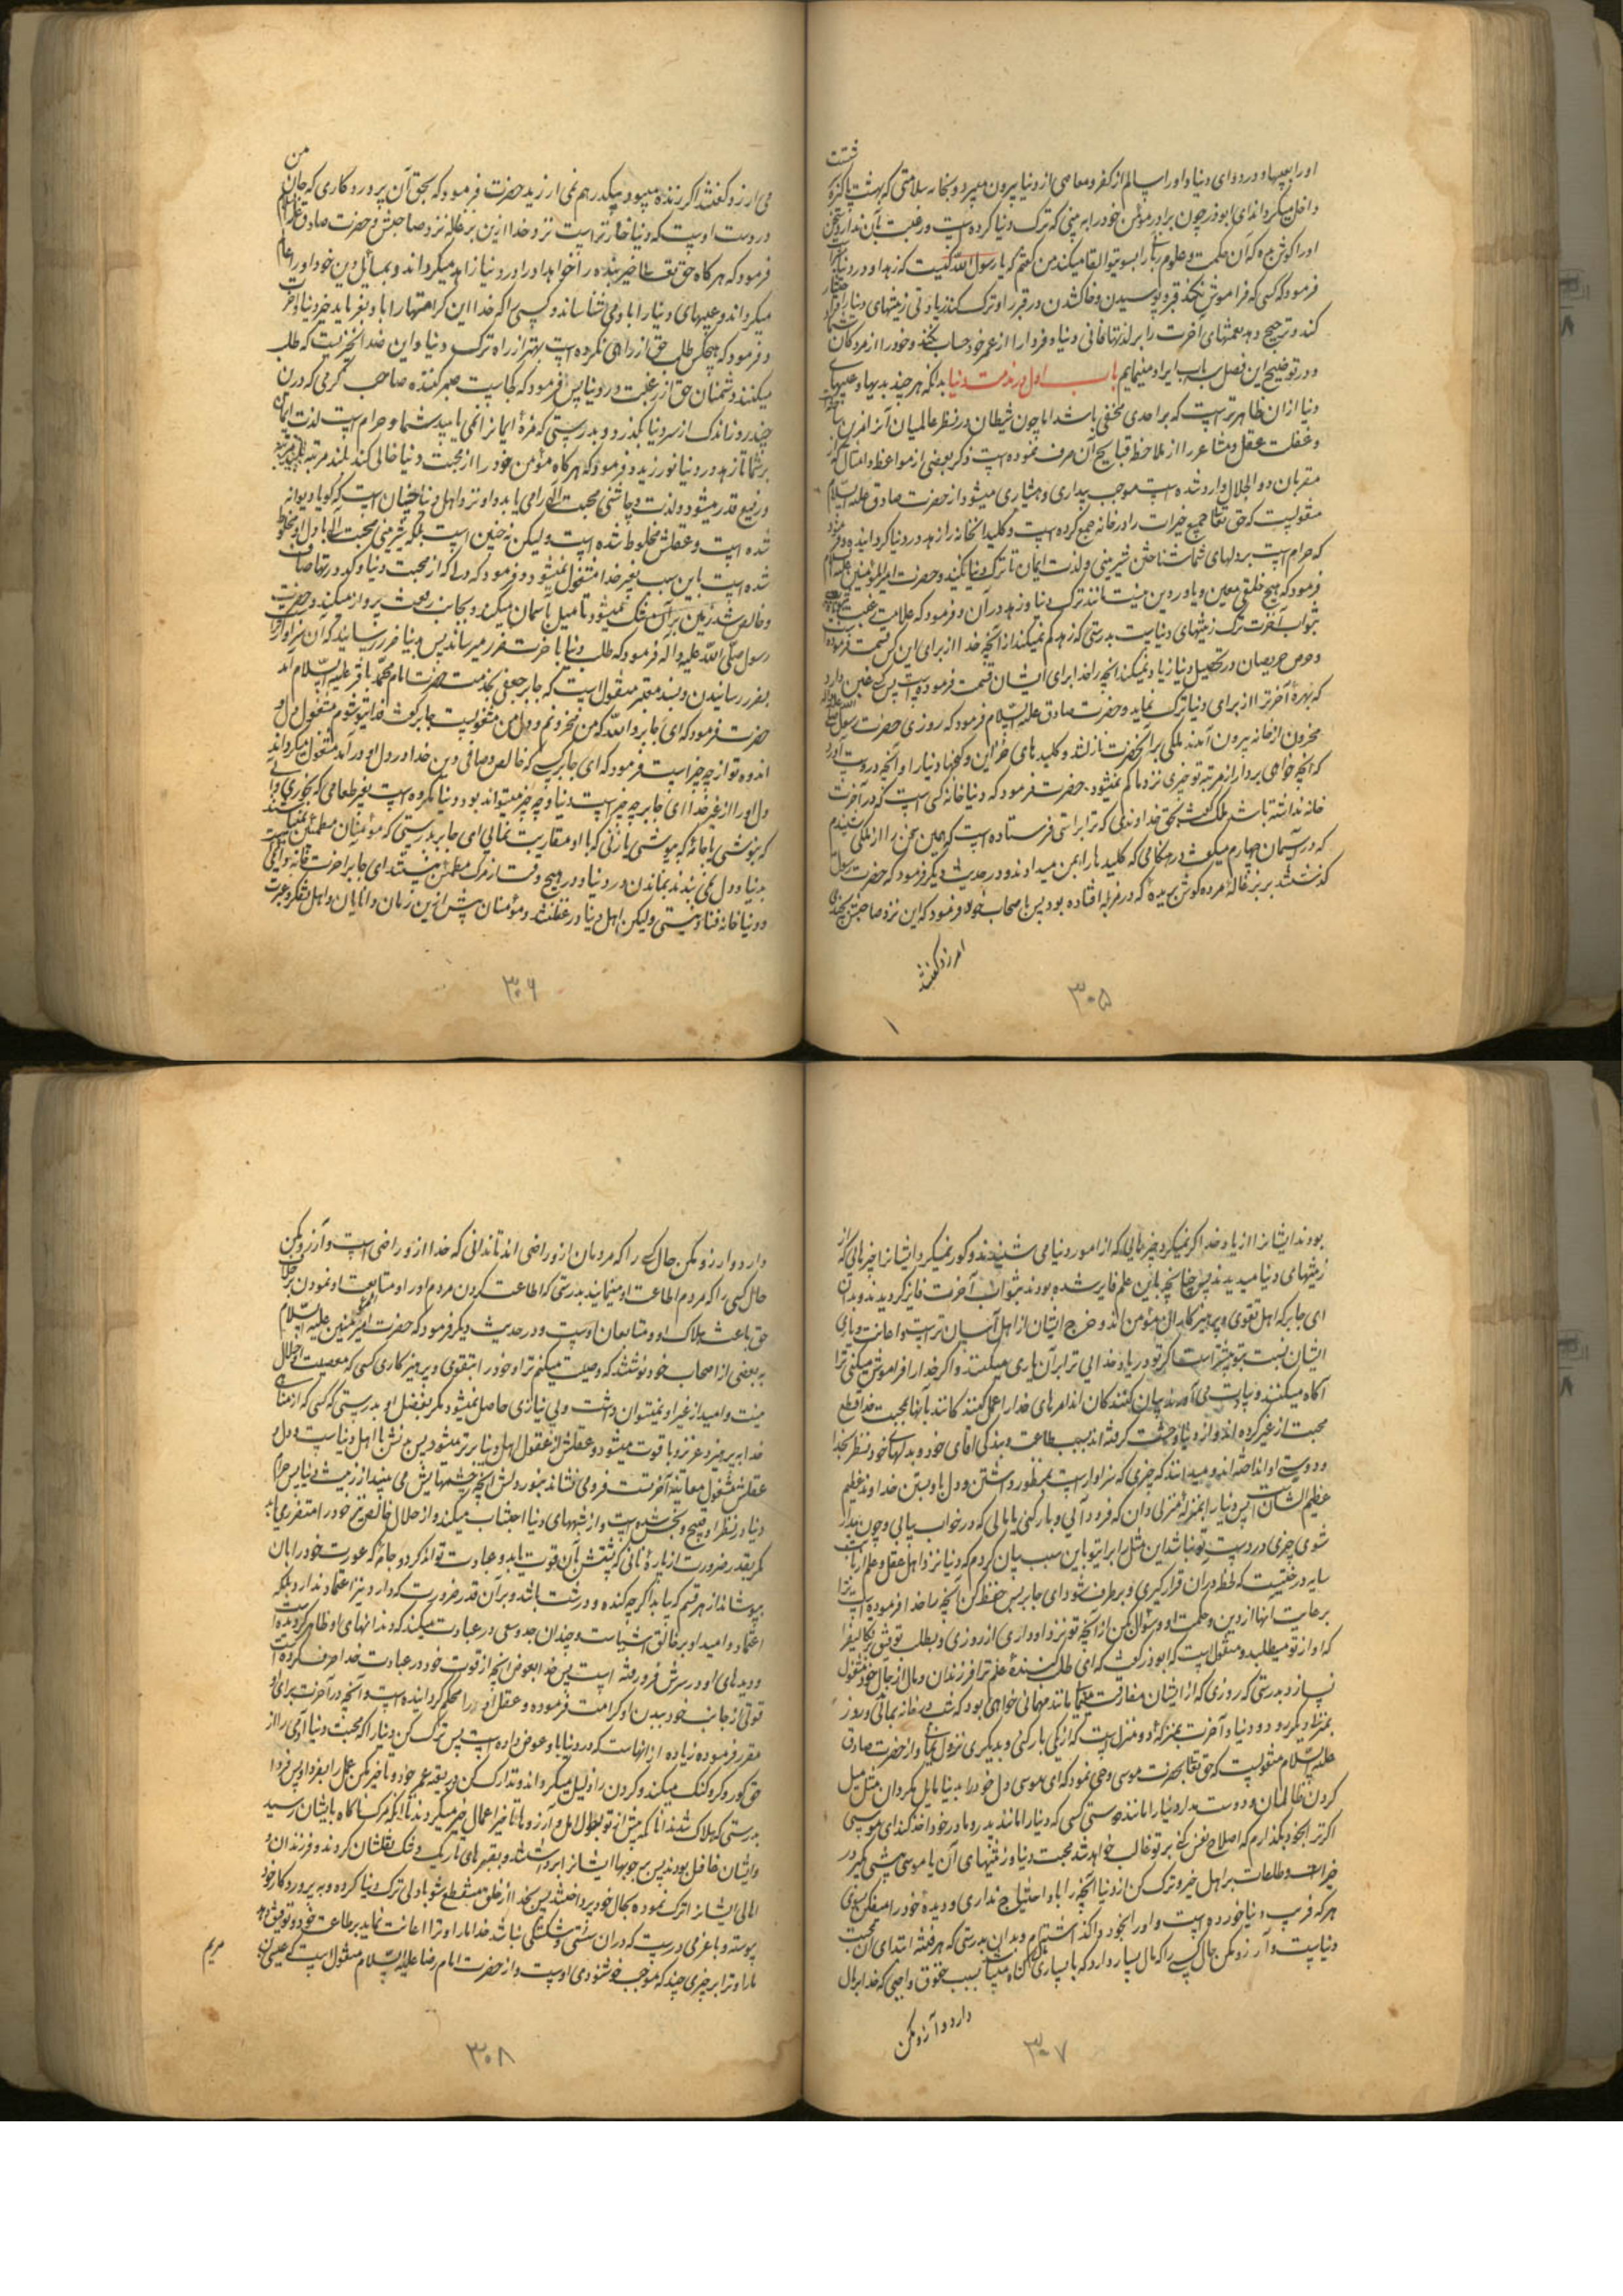 او را بعیبها و دردهای دنیا و او را سالم از کفر و معاصی از دنیا بیرون میبرد و بخانه سلامتی که بهشت پاکیزه
داخل میگرداند ای ابوذر چون برادر مؤمن خود را به بینی که ترک دنیا کرده است و رغبت بآن ندارد سخن
او را گوش ده که آن حکمت و علوم ربانی را بسوی تو القا میکند من گفتم که یا رسول الله کیست که زهد او در دنیا
فرمود که کسی که فراموش نکند قبر و پوسیدن و خاک شدن در قبر را و ترک کند زیادتی زینتهای دنیا را
کند و ترجیح دهد نعمتهای آخرت را بر لذتهای فانی دنیا و فردا را از عمر خود حساب نکند و خود را از مردگان
و در توضیح این فصل سه باب ایراد مینمایم باب اول در مذمت دنیا بدانکه هر چند بدیها و عیبهای
دنیا از ان ظاهرتر است که بر احدی مخفی باشد اما چون شیطان در نظر عالمیان آنرا مزین
و غفلت عقل و مشاعر را از ملاحظه قبایح آن صرف نموده است ذکر بعضی از مواعظ و امثال که از
مقربان ذوالجلال وارد شده است موجب بیداری و هشیاری میشود از حضرت صادق علیه السلام
منقولست که حق تعالی جمیع خیرات را در خانه جمع کرده است و کلید آنخانه را زهد در دنیا گردانیده و فرمود
که حرام است بر دلهای شما شناختن شیرینی و لذت ایمان تا ترک دنیا نکنید و حضرت امیرالمؤمنین علیه السلام
فرمود که هیچ خلقی معین و یاور دین نیست مانند ترک دنیا و زهد در آن و فرمود که علامت رغبت
بثواب آخرت ترک زینتهای دنیاست بدرستی که زهد کم نمیکند از آنچه خدا از برای این کس قسمت فرموده
و حرص حریصان در تحصیل دنیا زیاد نمیکند انچه را خدا برای ایشان قسمت فرموده است پس کسی غبن دارد
که بهره آخرت را از برای دنیا ترک نماید و حضرت صادق علیه السلام فرمود که روزی حضرت رسول
محزون از خانه بیرون آمدند ملکی بر آنحضرت نازل شد و کلیدهای خزاین و گنجهای دنیا را آورد
که انچه خواهی بردار از مرتبه تو چیزی نزد ما کم نمیشود حضرت فرمود که دنیا خانه کسی است که در آخرت
خانه نداشته باشد ملک گفت بحق خداوندی که ترا براستی فرستاده است که همین سخن را از ملکی شنیدم
که در آسمان چهارم میگفت در هنگامی که کلیدها را بمن میدادند و در حدیث دیگر فرمود که حضرت رسول
گذشتند بر بزغاله مرده گوش بریده که در مزبله افتاده بود پس باصحاب خود فرمود که این نزد صاحبش بچند
می ارزد گفتند
۳۰۵
می ارزد گفتند اگر زنده میبود بیکدرهم نمی ارزید حضرت فرمود که بحق آن پروردگاری که جان من
در دست اوست که دنیا خوارتر است نزد خدا از این بزغاله نزد صاحبش و حضرت صادق علیه السلام
فرمود که هرگاه حق تعالی خیر بنده را خواهد او را در دنیا زاهد میگرداند و بمسائل دین خود او را عالم
میگرداند و عیبهای دنیا را باو می شناساند و کسی را که خدا این کرامتها را باو بفرماید خیر دنیا و آخرت
و فرمود که هیچکس طلب حق از راهی نکرده است بهتر از راه ترک دنیا و این ضد آنچیزیست که طلب
میکنند دشمنان حق از رغبت در دنیا پس فرمود که کجاست صبر کننده صاحب کرمی که درین
چند روز اندک از سر دنیا بگذرد و بدرستی که مزه ایمان را نمی یابید شما و حرام است لذت ایمان
بر شما تا زهد در دنیا نورزید و فرمود که هرگاه مؤمن خود را از محبت دنیا خالی کند بلند مرتبه
و رفیع قدر میشود و لذت و چاشنی محبت الهی را می یابد و او نزد اهل دنیا چنان است که گویا دیوانه
شده است و عقلش مخلوط شده است ولیکن نه چنین است بلکه شیرینی محبت الهی با دل او مخلوط
شده است باین سبب بغیر خدا مشغول نمیشود و فرمود که دل را که از محبت دنیا و کدورتها صاف
و خالص شد زمین بر آن تنگ میشود تا میل بآسمان میکند و بجانب رفعت پرواز میکند و حضرت
رسول صلی الله علیه و آله فرمود که طلب دنیا باخرت ضرر میرساند پس بدنیا ضرر رسانید که آن سزاوارتر است
بضرر رسانیدن و بسند معتبر منقول است که جابر جعفی بخدمت حضرت امام محمد باقر علیه السلام آمد
حضرت فرمود که ای جابر والله که من محزونم و دل من مشغولست جابر گفت فدای تو شوم مشغولی دل و
اندوه تو از چه چیز است فرمود که ای جابر کسی که خالص و صافی دین خدا در دل او درآمد مشغول میگرداند
دل او را از غیر خدا ای جابر چه چیز است دنیا و چه چیز میتواند بود دنیا مگر هست بغیر طعامی که بخوری یا
که بپوشی یا جامه که بپوشی یا زنی که با او مقاربت نمائی ای جابر بدرستی که مؤمنان مطمئن نمیباشند
بدنیا و دل نمی بندند بماندن در دنیا و در هیچ وقت از مرگ مطمئن نیستند ای جابر آخرت خانه باقی است
و دنیا خانه فنا و نیستی ولیکن اهل دنیا در غفلتند و مؤمنان پیش از این زمان دانایان و اهل تفکر و عبرت
۳۰۶
بودند ایشان را از یاد خدا کر نمیکرد چیزهایی که از امور دنیا می شنیدند و کور نمیگردانید ایشان را چیزهائی که از
زینتهای دنیا میدیدند پس چنانچه باین علم فایز شده بودند بثواب آخرت فایز گردیدند و بدان
ای جابر که اهل تقوی و پرهیزکاری مؤمن اند و خرج ایشان از اهل آسان تر است و اعانت و یاری
ایشان نسبت بتو بیشتر است اگر تو در یاد خدایی ترا بر آن یاری میکنند و اگر خدا را فراموش میکنی ترا
آگاه میکنند بیان کنندگان اند امرهای خدا را
محبت از غیر کرده اند و از دنیا وحشت گرفته اند بسبب طاعت و بندگی آقای خود و بدلهای خود نظر بخدا
و دوستی او انداخته اند و میدانند که چیزی که سزاوار است بمنظور داشتن و دل باو بستن خداوند عظیم
عظیم الشان است پس دنیا را بمنزله منزلی دان که فرود آئی و بار کنی یا مالی که در خواب بیابی و چون بیدار
شوی چیزی در دست تو نباشد این مثل را برای تو باین سبب بیان کردم که دنیا نزد اهل عقل و علم از بابت
سایه درختیست که لحظه در آن قرار گیری و برطرف شود ای جابر پس حفظ کن آنچه را خدا فرموده است
برعایت آنها از دین و حکمت او و سؤال مکن از آنچه تو نزد او داری از روزی و بطلب توفیق تکالیف را
که او از تو میطلبد و منقول است که ابوذر گفت که ای طلب کننده علم ترا فرزندان و مال از حال خود مشغول
نسازد بدرستی که روزی که از ایشان مفارقت نمائی مانند مهمانی خواهی بود که شب در خانه بمانی و روز
بمنزل دیگر رود و دنیا و آخرت بمنزله دو منزل است که از یکی بار کنی و بدیگری نزول نمائی و از حضرت صادق
علیه السلام منقولست که حق تعالی بحضرت موسی وحی نمود که ای موسی دل خود را بدنیا مایل مگردان مثل میل
کردن ظالمان و دوست مدار دنیا را مانند دوستی کسی که دنیا را مانند پدر و مادر خود اخذ کند ای موسی
اگر ترا بخود بگذارم که اصلاح نفس کنی بر تو غالب خواهد شد محبت دنیا و زینتهای آن یا موسی پیشی گیر در
خیرات و طاعات بر اهل خیر و ترک کن از دنیا آنچه را باو احتیاج نداری و دیده خود را میفکن بسوی
هر که فریب دنیا خورده است و او را بخود واگذاشته ام و بدان بدرستی که هر فتنه ابتدای آن محبت
دنیاست و آرزو مکن حال کسی را که مال بسیار دارد که با بسیاری مال گناه بسیار است بسبب حقوق واجبی که خدا بر مال
دارد و آرزو مکن
۳۰۷
دارد و آرزو مکن حال کسی را که مردمان از او راضی اند تا ندانی که خدا از او راضی است و آرزو مکن
حال کسی را که مردم اطاعت او مینمایند بدرستی که اطاعت کردن مردم او را و متابعت او نمودن بر خلاف
حق باعث هلاک او و متابعان اوست و در حدیث دیگر فرمود که حضرت امیرالمؤمنین علیه السلام
به بعضی از اصحاب خود نوشتند که وصیت میکنم ترا و خود را بتقوی و پرهیزکاری کسی که معصیت او حلال
نیست و امید از غیر او نمیتوان داشت و بی نیازی حاصل نمیشود مگر بفضل او بدرستی که کسی که از مناهی
خدا بپرهیزد عزیز و با قوت میشود و عقلش از عقول اهل دنیا برتر میشود پس بدنش با اهل دنیاست و دل و
عقلش مشغول معاینه آخرتست فرو می نشاند بنور دلش انچه چشمهایش می بیند از زینت دنیا پس حرام
دنیا در نظر او قبیح و نجس شده است و از شبههای دنیا اجتناب میکند و از حلال خالص نیز خود را متضرر میداند
مگر بقدر ضرورت از پاره نانی که پشتش بآن قوت یابد و عبادت تواند کرد و جامه که عورت خود را بآن
بپوشاند از هر قسم که بیابد اگرچه گنده و درشت باشد و بر آن قدر ضرورت که دارد نیز اعتماد ندارد بلکه
اعتماد و امید او بر خالق اشیاست و چندان جد و سعی در عبادت میکند که دندانهای او ظاهر گردیده است
و دیدهای او در سرش فرو رفته است پس خدا بعوض انچه از قوت خود در عبادت خدا صرف کرده است
قوتی از جانب خود ببدن او کرامت فرموده و عقل او را محکم گردانیده است و آنچه در آخرت برای او
مقرر فرموده زیاده از آنهاست که در دنیا باو عوض داده است پس ترک کن دنیا را که محبت دنیا آدمی را از
حق کور و کر و گنگ میکند و گردن را ذلیل میگرداند و تدارک کن در بقیه عمر خود و تاخیر مکن عمل را بفردا و پس فردا
بدرستی که هلاک شدند آنها که پیش از تو بطول امل و آرزوها تاخیر اعمال خیر میکردند تا آنکه مرگ ناگاه بایشان رسید
و ایشان غافل بودند پس بر چوبها ایشان را برداشتند و بقبرهای تاریک و تنگ نقلشان کردند و فرزندان و
اهالی ایشان را ترک نموده بحال خود پرداختند پس بخدا از خلق منقطع شو با دلی ترک دنیا کرده و به پروردگار خود
پیوسته و با عزمی درست که در آن سستی و شکستگی نباشد خدا ما را و ترا اعانت نماید بر طاعت خود و توفیق دهد
ما را و ترا بر چیزی چند که موجب خوشنودی اوست و از حضرت امام رضا علیه السلام منقول است که عیسی بن
مریم
۳۰۸